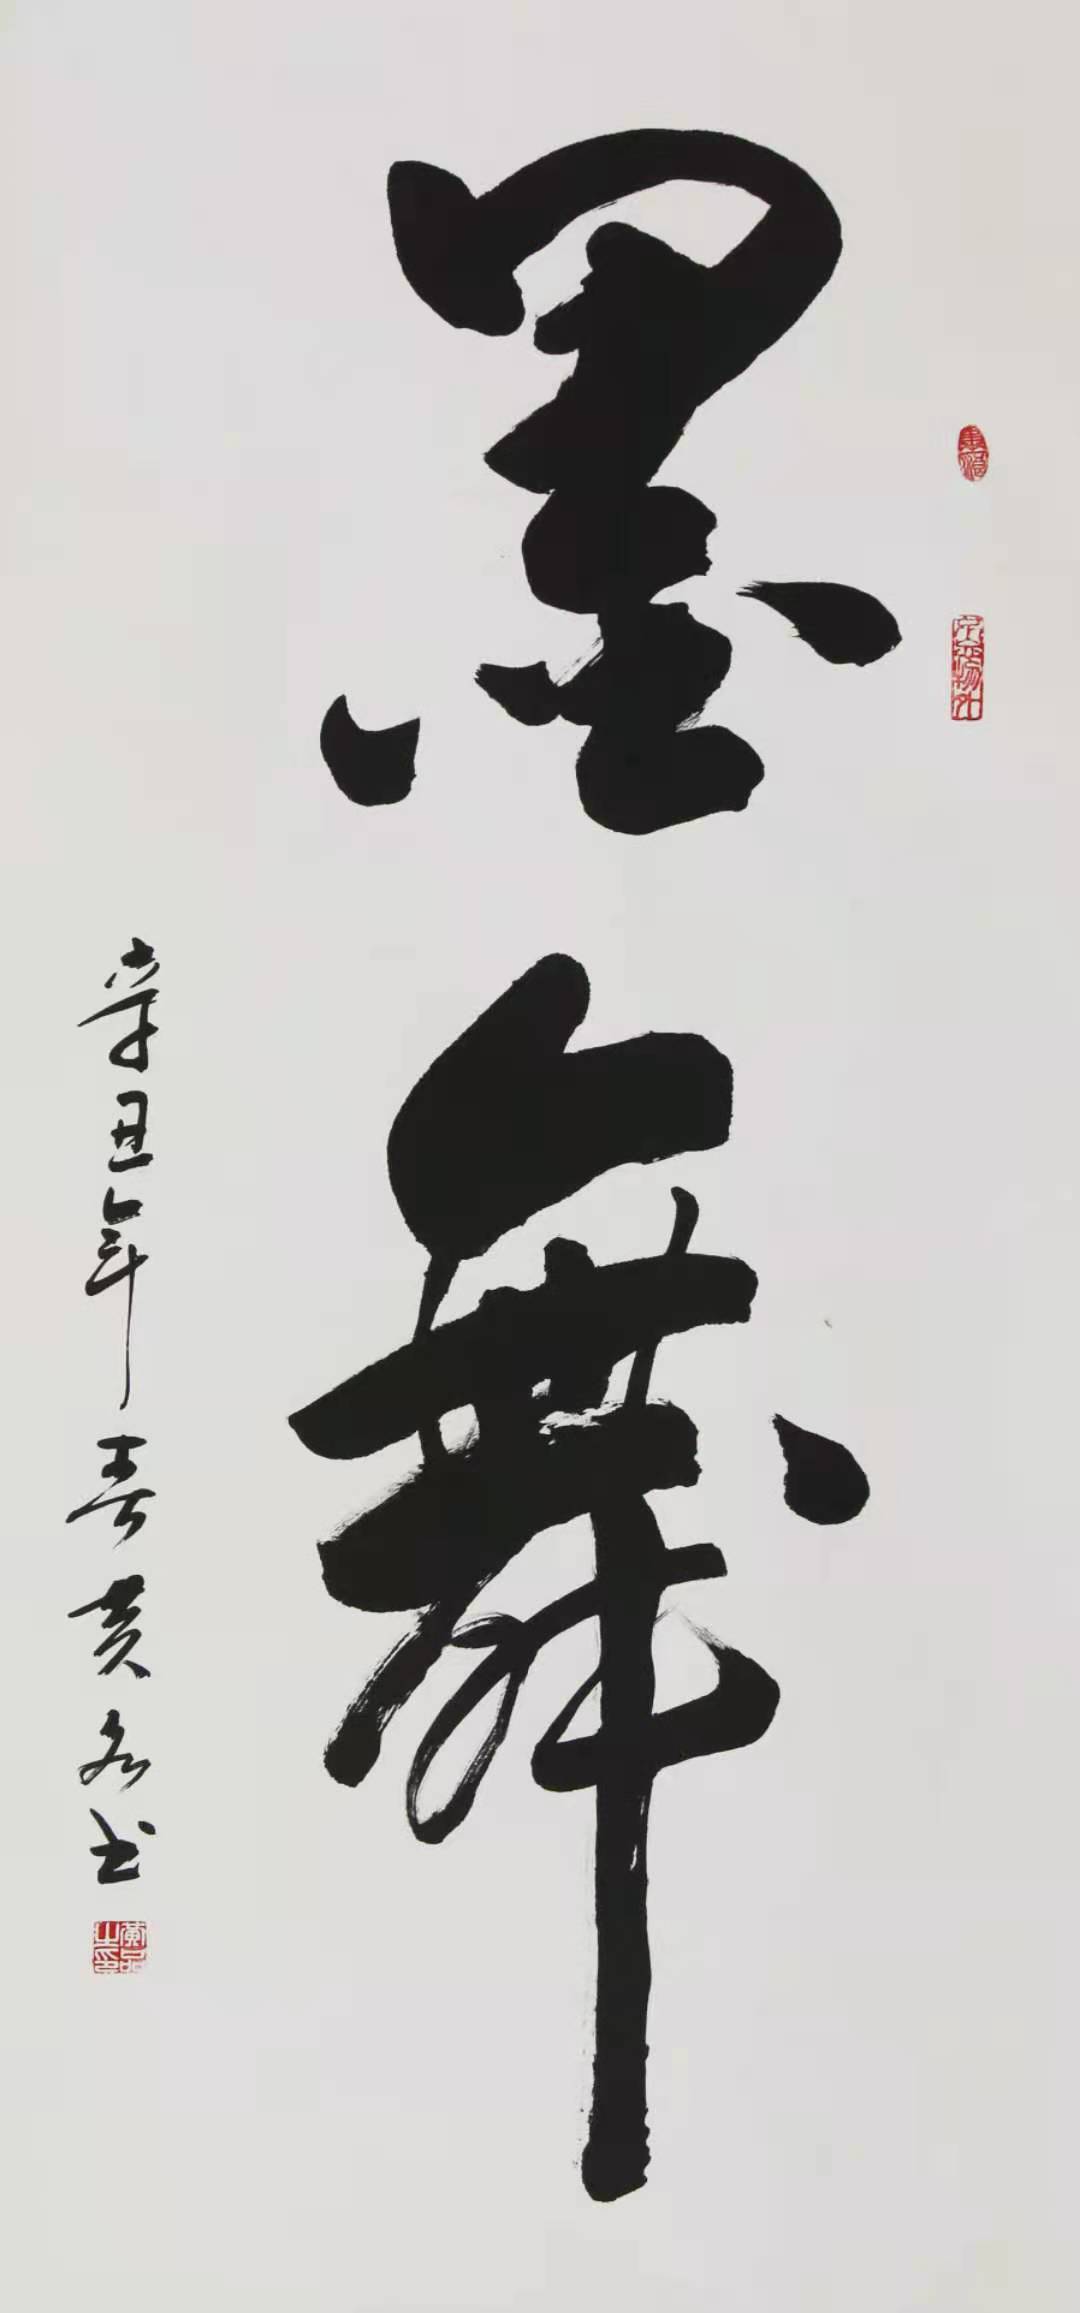 墨舞
辛丑年春黄书